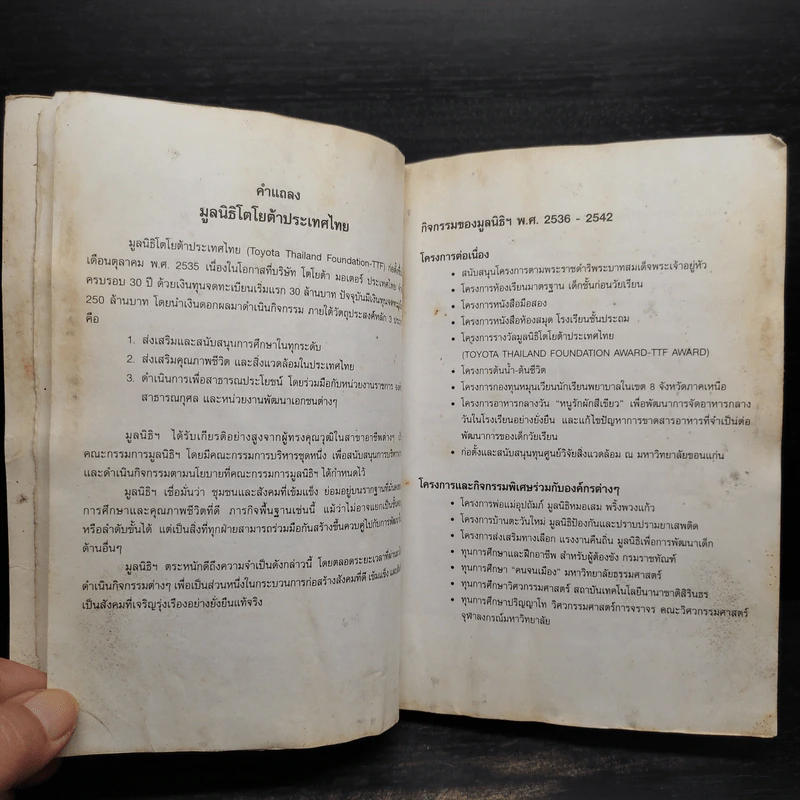 คำแถลง
มูลนิธิโตโยต้าประเทศไทย
มูลนิธิโตโยต้าประเทศไทย (Toyota Thailand Foundation-TTF)
เดือนตุลาคม พ.ศ. 2535 เนื่องในโอกาสที่บริษัท โตโยต้า มอเตอร์ ประเทศไทย
ครบรอบ 30 ปี ด้วยเงินทุนจดทะเบียนเริ่มแรก 30 ล้านบาท ปัจจุบันมีเงินทุน
250 ล้านบาท โดยนำเงินดอกผลมาดำเนินกิจกรรม ภายใต้วัตถุประสงค์หลัก 3
คือ
1. ส่งเสริมและสนับสนุนการศึกษาในทุกระดับ
2. ส่งเสริมคุณภาพชีวิต และสิ่งแวดล้อมในประเทศไทย
3. ดำเนินการเพื่อสาธารณประโยชน์ โดยร่วมมือกับหน่วยงานราชการ
สาธารณกุศล และหน่วยงานพัฒนาเอกชนต่างๆ
มูลนิธิฯ ได้รับเกียรติอย่างสูงจากผู้ทรงคุณวุฒิในสาขาอาชีพต่างๆ
คณะกรรมการมูลนิธิฯ โดยมีคณะกรรมการบริหารชุดหนึ่ง เพื่อสนับสนุนการบริหาร
และดำเนินกิจกรรมตามนโยบายที่คณะกรรมการมูลนิธิฯ ได้กำหนดไว้
มูลนิธิฯ เชื่อมั่นว่า ชุมชนและสังคมที่เข้มแข็ง ย่อมอยู่บนรากฐานที่มั่นคง
การศึกษาและคุณภาพชีวิตที่ดี ภารกิจพื้นฐานเช่นนี้ แม้ว่าไม่อาจแยกเป็น
หรือลำดับขั้นได้ แต่เป็นสิ่งที่ทุกฝ่ายสามารถร่วมมือกันสร้างขึ้นควบคู่ไปกับการพัฒนา
ด้านอื่นๆ
มูลนิธิฯ ตระหนักดีถึงความจำเป็นดังกล่าวนี้ โดยตลอดระยะเวลาที่ผ่านมา
ดำเนินกิจกรรมต่างๆ เพื่อเป็นส่วนหนึ่งในกระบวนการก่อสร้างสังคมที่ดี เข้มแข็ง
เป็นสังคมที่เจริญรุ่งเรืองอย่างยั่งยืนแท้จริง
กิจกรรมของมูลนิธิฯ พ.ศ. 2536 - 2542
โครงการต่อเนื่อง
• สนับสนุนโครงการตามพระราชดำริพระบาทสมเด็จพระเจ้าอยู่หัว
• โครงการห้องเรียนมาตรฐาน เด็กชั้นก่อนวัยเรียน
• โครงการหนังสือมือสอง
• โครงการหนังสือห้องสมุด โรงเรียนชั้นประถม
• โครงการรางวัลมูลนิธิโตโยต้าประเทศไทย
(TOYOTA THAILAND FOUNDATION AWARD-TTF AWARD)
• โครงการต้นน้ำ-ต้นชีวิต
• โครงการกองทุนหมุนเวียนนักเรียนพยาบาลในเขต 8 จังหวัดภาคเหนือ
• โครงการอาหารกลางวัน "หนูรักผักสีเขียว" เพื่อพัฒนาการจัดอาหารกลาง
วันในโรงเรียนอย่างยั่งยืน และแก้ไขปัญหาการขาดสารอาหารที่จำเป็นต่อ
พัฒนาการของเด็กวัยเรียน
• ก่อตั้งและสนับสนุนทุนศูนย์วิจัยสิ่งแวดล้อม ณ มหาวิทยาลัยขอนแก่น
โครงการและกิจกรรมพิเศษร่วมกับองค์กรต่างๆ
• โครงการพ่อแม่อุปถัมภ์ มูลนิธิหมอเสม พริ้งพวงแก้ว
• โครงการบ้านตะวันใหม่ มูลนิธิป้องกันและปราบปรามยาเสพติด
• โครงการส่งเสริมทางเลือก แรงงานคืนถิ่น มูลนิธิเพื่อการพัฒนาเด็ก
• ทุนการศึกษาและฝึกอาชีพ สำหรับผู้ต้องขัง กรมราชทัณฑ์
• ทุนการศึกษา "คนจนเมือง" มหาวิทยาลัยธรรมศาสตร์
• ทุนการศึกษาวิศวกรรมศาสตร์ สถาบันเทคโนโลยีนานาชาติสิรินธร
• ทุนการศึกษาปริญญาโท วิศวกรรมศาสตร์การจราจร คณะวิศวกรรมศาสตร์
จุฬาลงกรณ์มหาวิทยาลัย